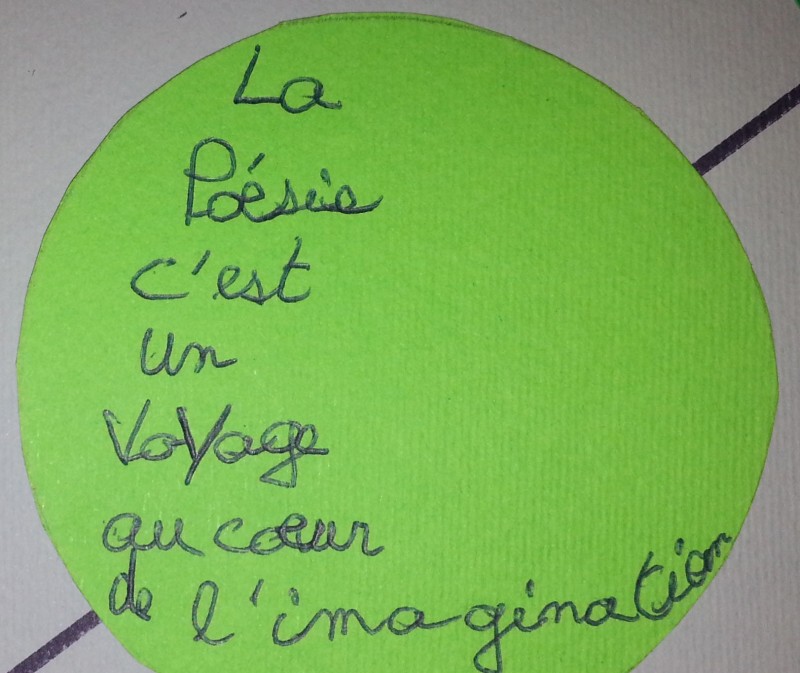 La
Poésie
c'est
un
Voyage
au cœur
de l'imagination